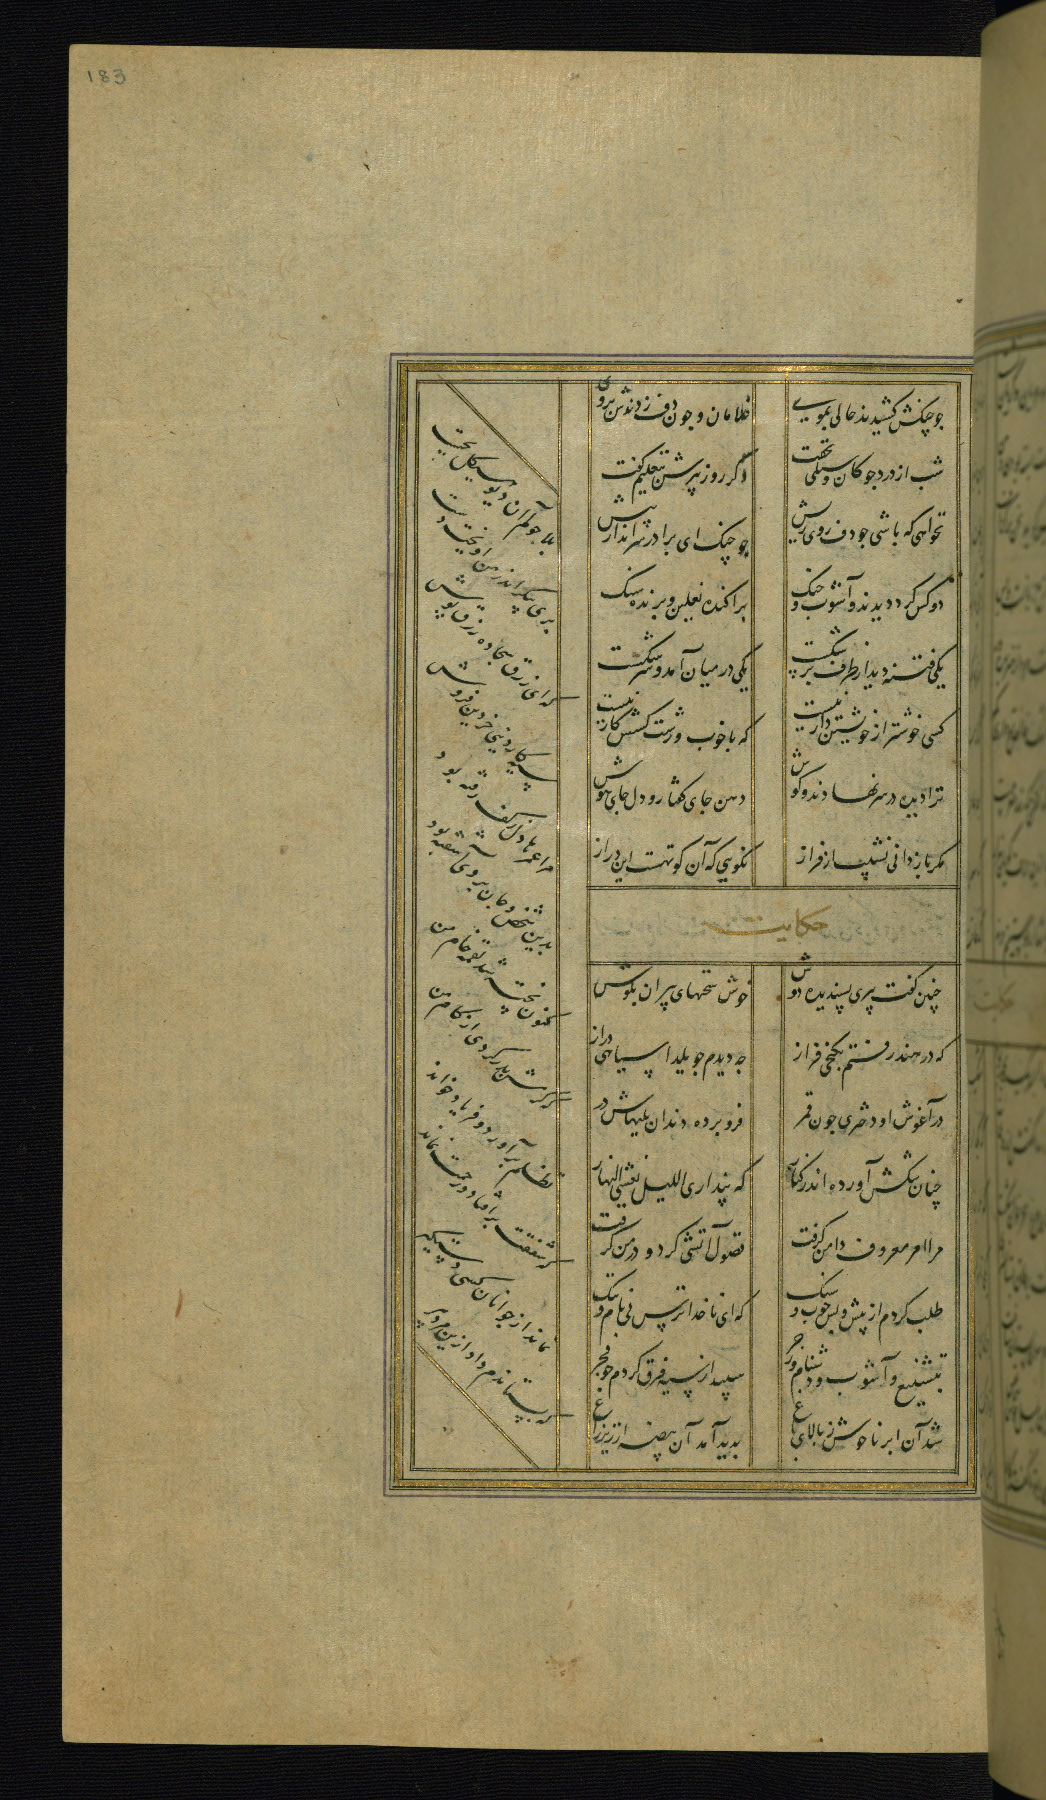 183
چو چنکش کشیدند حالی بموی غلامان و چون دف زدندش بروی
شب از درد چوکان و سیلی نخفت دکر روز پیرش بتعلیم کفت
نخواهی که باشی چو دف روی ریش چو چنک ای برادر سر انداز پیش
دو کس کرد دیدند و آشوب و جنک پراکنده نعلین و پرنده سنک
یکی فتنه دید از طرف بر شکست یکی در میان آمد و سر شکست
کسی خوشتر از خویشتن دار نیست که با خوب و زشت کسش کار نیست
ترا دیده در سر نهادند و کوش دهن جای کفتار و دل جای هوش
مکر باز دانی نشیب از فراز نکویی که آن کوتهست این دراز
حکایت
چنین کفت پیری پسندیده دوش خوش سخنهای پیران بکوش
که در هند رفتم بکنجی فراز چه دیدم چو یلدا سیاهی دراز
در آغوش او دختری چون قمر فرو برده دندان بلبهاش در
چنان تنکش آورده اندر کنار که پنداری اللیل یغشی النهار
مرا امر معروف دامن کرفت فضول آتشی کرد و در من کرفت
طلب کردم از پیش و پس چوب و سنک که ای ناخدا ترس بی نام و ننک
بتشنیع و آشوب و دشنام و زجر سپید از سیه فرق کردم چو فجر
شد آن ابر ناخوش ز بالای باغ پدید آمد آن بیضه از زیر زاغ
ز لاحولم آن دیو هیکل بجست
پری پیکر اندر من آویخت دست
که ای زرق سجاده زرق پوش
سیه کار دنیی خر دین فروش
مرا عمرها دل ز کف رفته بود
بدین شخص و جان بر وی آشفته بود
کنون پخته شد لقمه خام من
که کرمش بدر کردی از کام من
تظلم برآورد و فریاد خواند
که شفقت برافتاد و رحمت نماند
نماند از جوانان کسی دستکیر
که بستاندم داد ازین مرد پیر